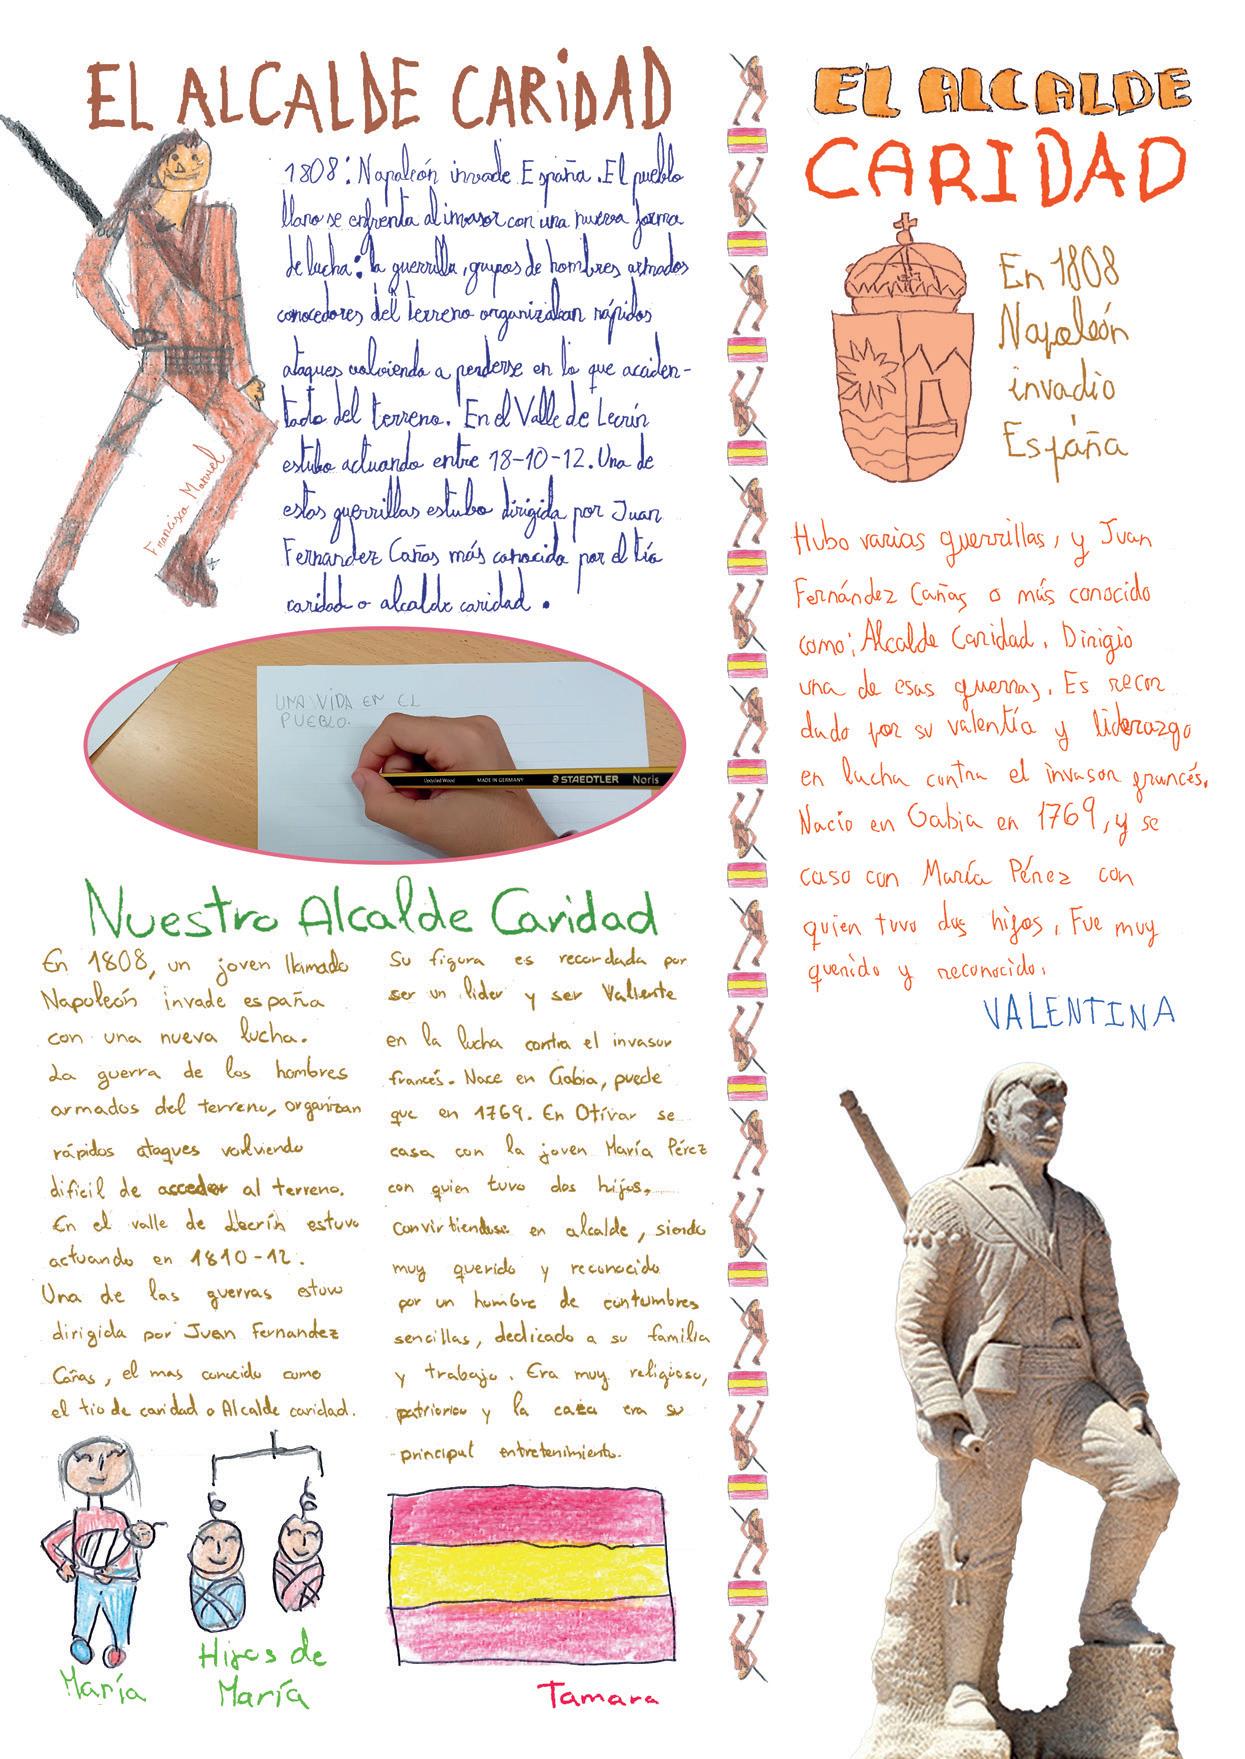 EL ALCALDE CARIDAD
1808: Napoleón invade España. El pueblo
llano se enfrenta al invasor con una nueva forma
de lucha: la guerrilla, grupos de hombres armados
conocedores del terreno organizaban rápidos
ataques volviendo a perderse en lo que acciden-
tado del terreno. En el Valle de Lecrín
estubo actuando entre 18-10-12. Una de
estas guerrillas estubo dirigida por Juan
Fernandez Cañas más conocido por el tío
caridad o alcalde caridad.
Francisco Manuel
UNA VIDA EN EL
PUEBLO.
Upcycled Wood MADE IN GERMANY STAEDTLER Noris
Nuestro Alcalde Caridad
En 1808, un joven llamado
Napoleón invade españa
con una nueva lucha.
La guerra de los hombres
armados del terreno, organizan
rápidos ataques volviendo
dificil de acceder al terreno.
En el valle de estuvo
actuando en 1810-12.
Una de las guerras estuvo
dirigida por Juan Fernandez
Cañas, el mas conocido como
el tio de caridad o Alcalde caridad.
María
Hijos de
María
Su figura es recordada por
ser un lider y ser Valiente
en la lucha contra el invasor
francés. Nace en Gabia, puede
que en 1769. En Otívar se
casa con la joven María Pérez
con quien tuvo dos hijos,
convirtiendose en alcalde, siendo
muy querido y reconocido
por un hombre de contumbres
sencillas, dedicado a su familia
y trabajo. Era muy religioso,
y la caza era su
principal entretenimiento.
Tamara
EL ALCALDE
CARIDAD
En 1808
Napoleón
invadio
España
Hubo varias guerrillas, y Juan
Fernández Cañas o más conocido
como; Alcalde Caridad. Dirigio
una de esas guerras. Es recor
dado por su valentía y liderazgo
en lucha contra el invasor francés.
Nacio en Gabia en 1769, y se
caso con María Pérez con
quien tuvo dos hijos, Fue muy
querido y reconocido.
VALENTINA